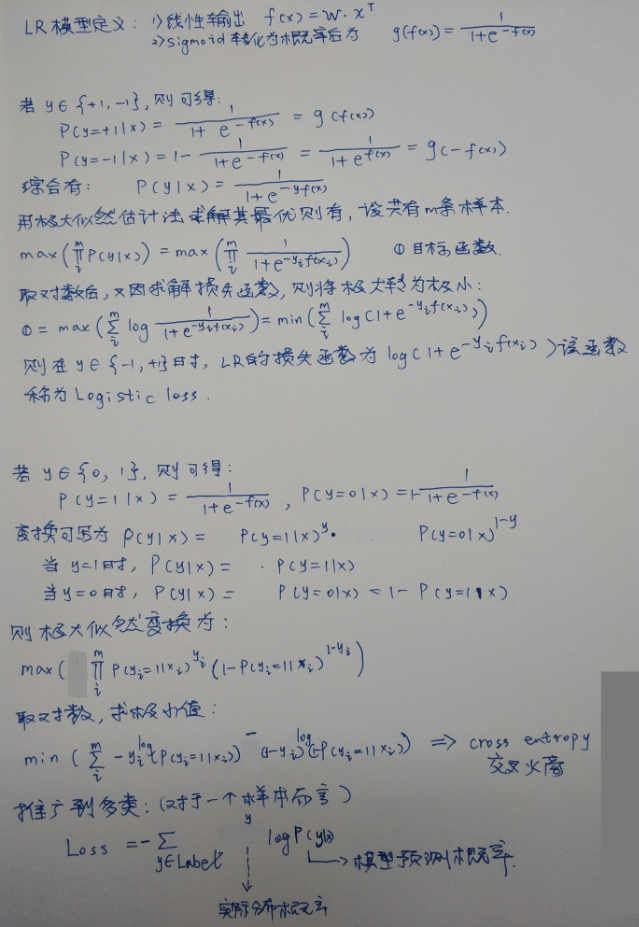 LR模型定义: 1)线性输出 f(x)=w·xᵀ
2)sigmoid转化为概率后为 g(f(x))=1/(1+e^{-f(x)})
若 y∈{+1,-1},则可得:
P(y=+1|x)=1/(1+e^{-f(x)})=g(f(x))
P(y=-1|x)=1-1/(1+e^{-f(x)})=1/(1+e^{f(x)})=g(-f(x))
综合有: P(y|x)=1/(1+e^{-yf(x)})
用极大似然估计法求解其最优则有,设共有m条样本.
max(∏_i^m P(y|x))=max(∏_i^m 1/(1+e^{-y_i f(x_i)})) ①目标函数.
取对数后,又因求解损失函数,则将极大转为极小:
①=max(∑_i^m log 1/(1+e^{-y_i f(x_i)}))=min(∑_i^m log(1+e^{-y_i f(x_i)}))
则在 y∈{-1,+1}时, LR的损失函数为 log(1+e^{-y_i f(x_i)})该函数
称为 Logistic loss.
若 y∈{0, 1},则可得:
P(y=1|x)=1/(1+e^{-f(x)}), P(y=0|x)=1-1/(1+e^{-f(x)})
变换可写为 P(y|x)= P(y=1|x)^y· P(y=0|x)^{1-y}
当 y=1时, P(y|x)= · P(y=1|x)
当 y=0时, P(y|x)= P(y=0|x)=1-P(y=1|x)
则极大似然变换为:
max( ∏_i^m P(y_i=1|x_i)^{y_i}(1-P(y_i=1|x_i)^{1-y_i})
取对数,求极小值:
min(∑_i^m -y_i log(P(y_i=1|x_i)) - (1-y_i)log(1-P(y_i=1|x_i)) ⇒ cross entropy
交叉熵
推广到多类:(对于一个样本而言)
Loss=-∑_{y∈Label} y logP(y|x)
模型预测概率.
实际分布概率